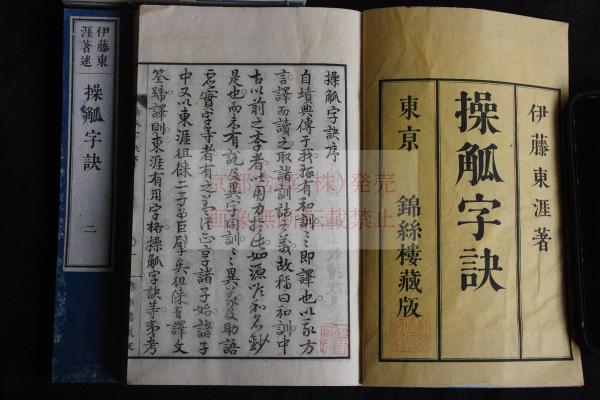 伊藤東涯著
操觚字訣
東京 錦絲樓藏版
操觚字訣序
自墳典傳于我孫有和訓〻即譯也以我方
言譯而讀之取諸訓詁之義故稱曰和訓中
古以前之李者以用力於此如源順和名鈔
是也而未有説及異字同訓〻異義及助語
虚實字等者有之
中又以東涯徂徠二子為巨擘矣徂徠有譯文
筌蹄譯則東涯有用字格操觚字訣等弟考
伊藤東
涯著述
操觚字訣
二
京都含英(株)発売
画像無断転載禁止